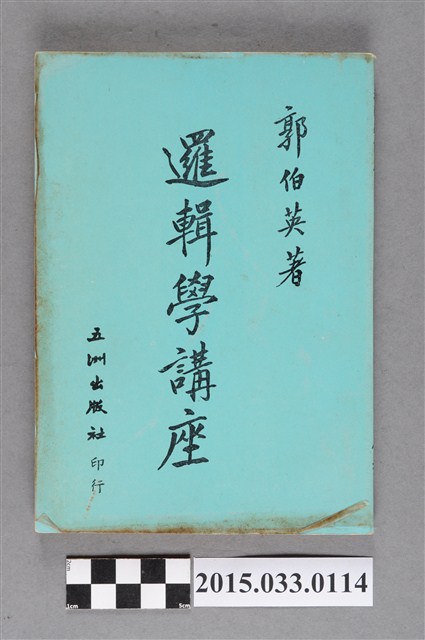 郭伯英著
邏輯學講座
五洲出版社印行
2cm
1cm
5cm
2015.033.0114